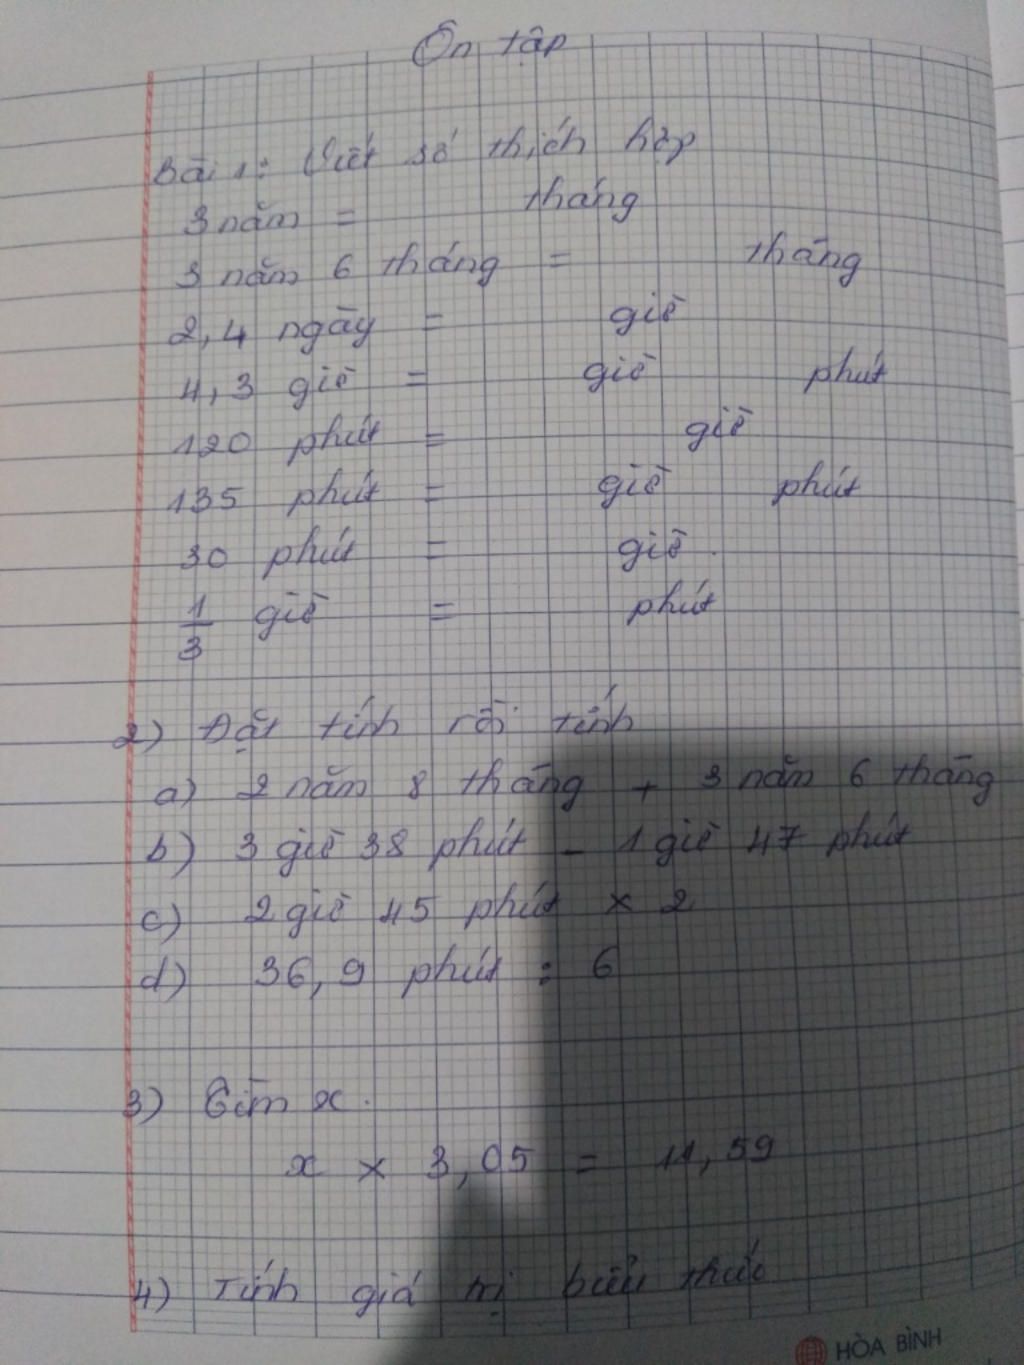 Ôn tập
Bài 1: Viết số thích hợp
3 năm = tháng
3 năm 6 tháng = tháng
2,4 ngày = giờ
4,3 giờ = giờ phút
120 phút = giờ
135 phút = giờ phút
30 phút = giờ.
1/3 giờ = phút
2) Đặt tính rồi tính
a) 2 năm 8 tháng + 3 năm 6 tháng
b) 3 giờ 38 phút - 1 giờ 47 phút
c) 2 giờ 45 phút x 2
d) 36,9 phút : 6
3) Tìm x.
x x 3,05 = 11,59
4) Tính giá trị biểu thức
HÒA BÌNH